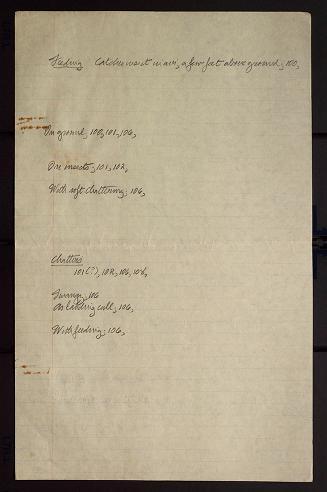 Feeding Catches insect in air, a few feet above ground; 100,
On ground; 100, 101, 106,
On insects; 101, 102,
With soft chattering; 106,
Chatters
101(?), 102, 106, 108,
106
as landing call; 106,
With feeding; 106,